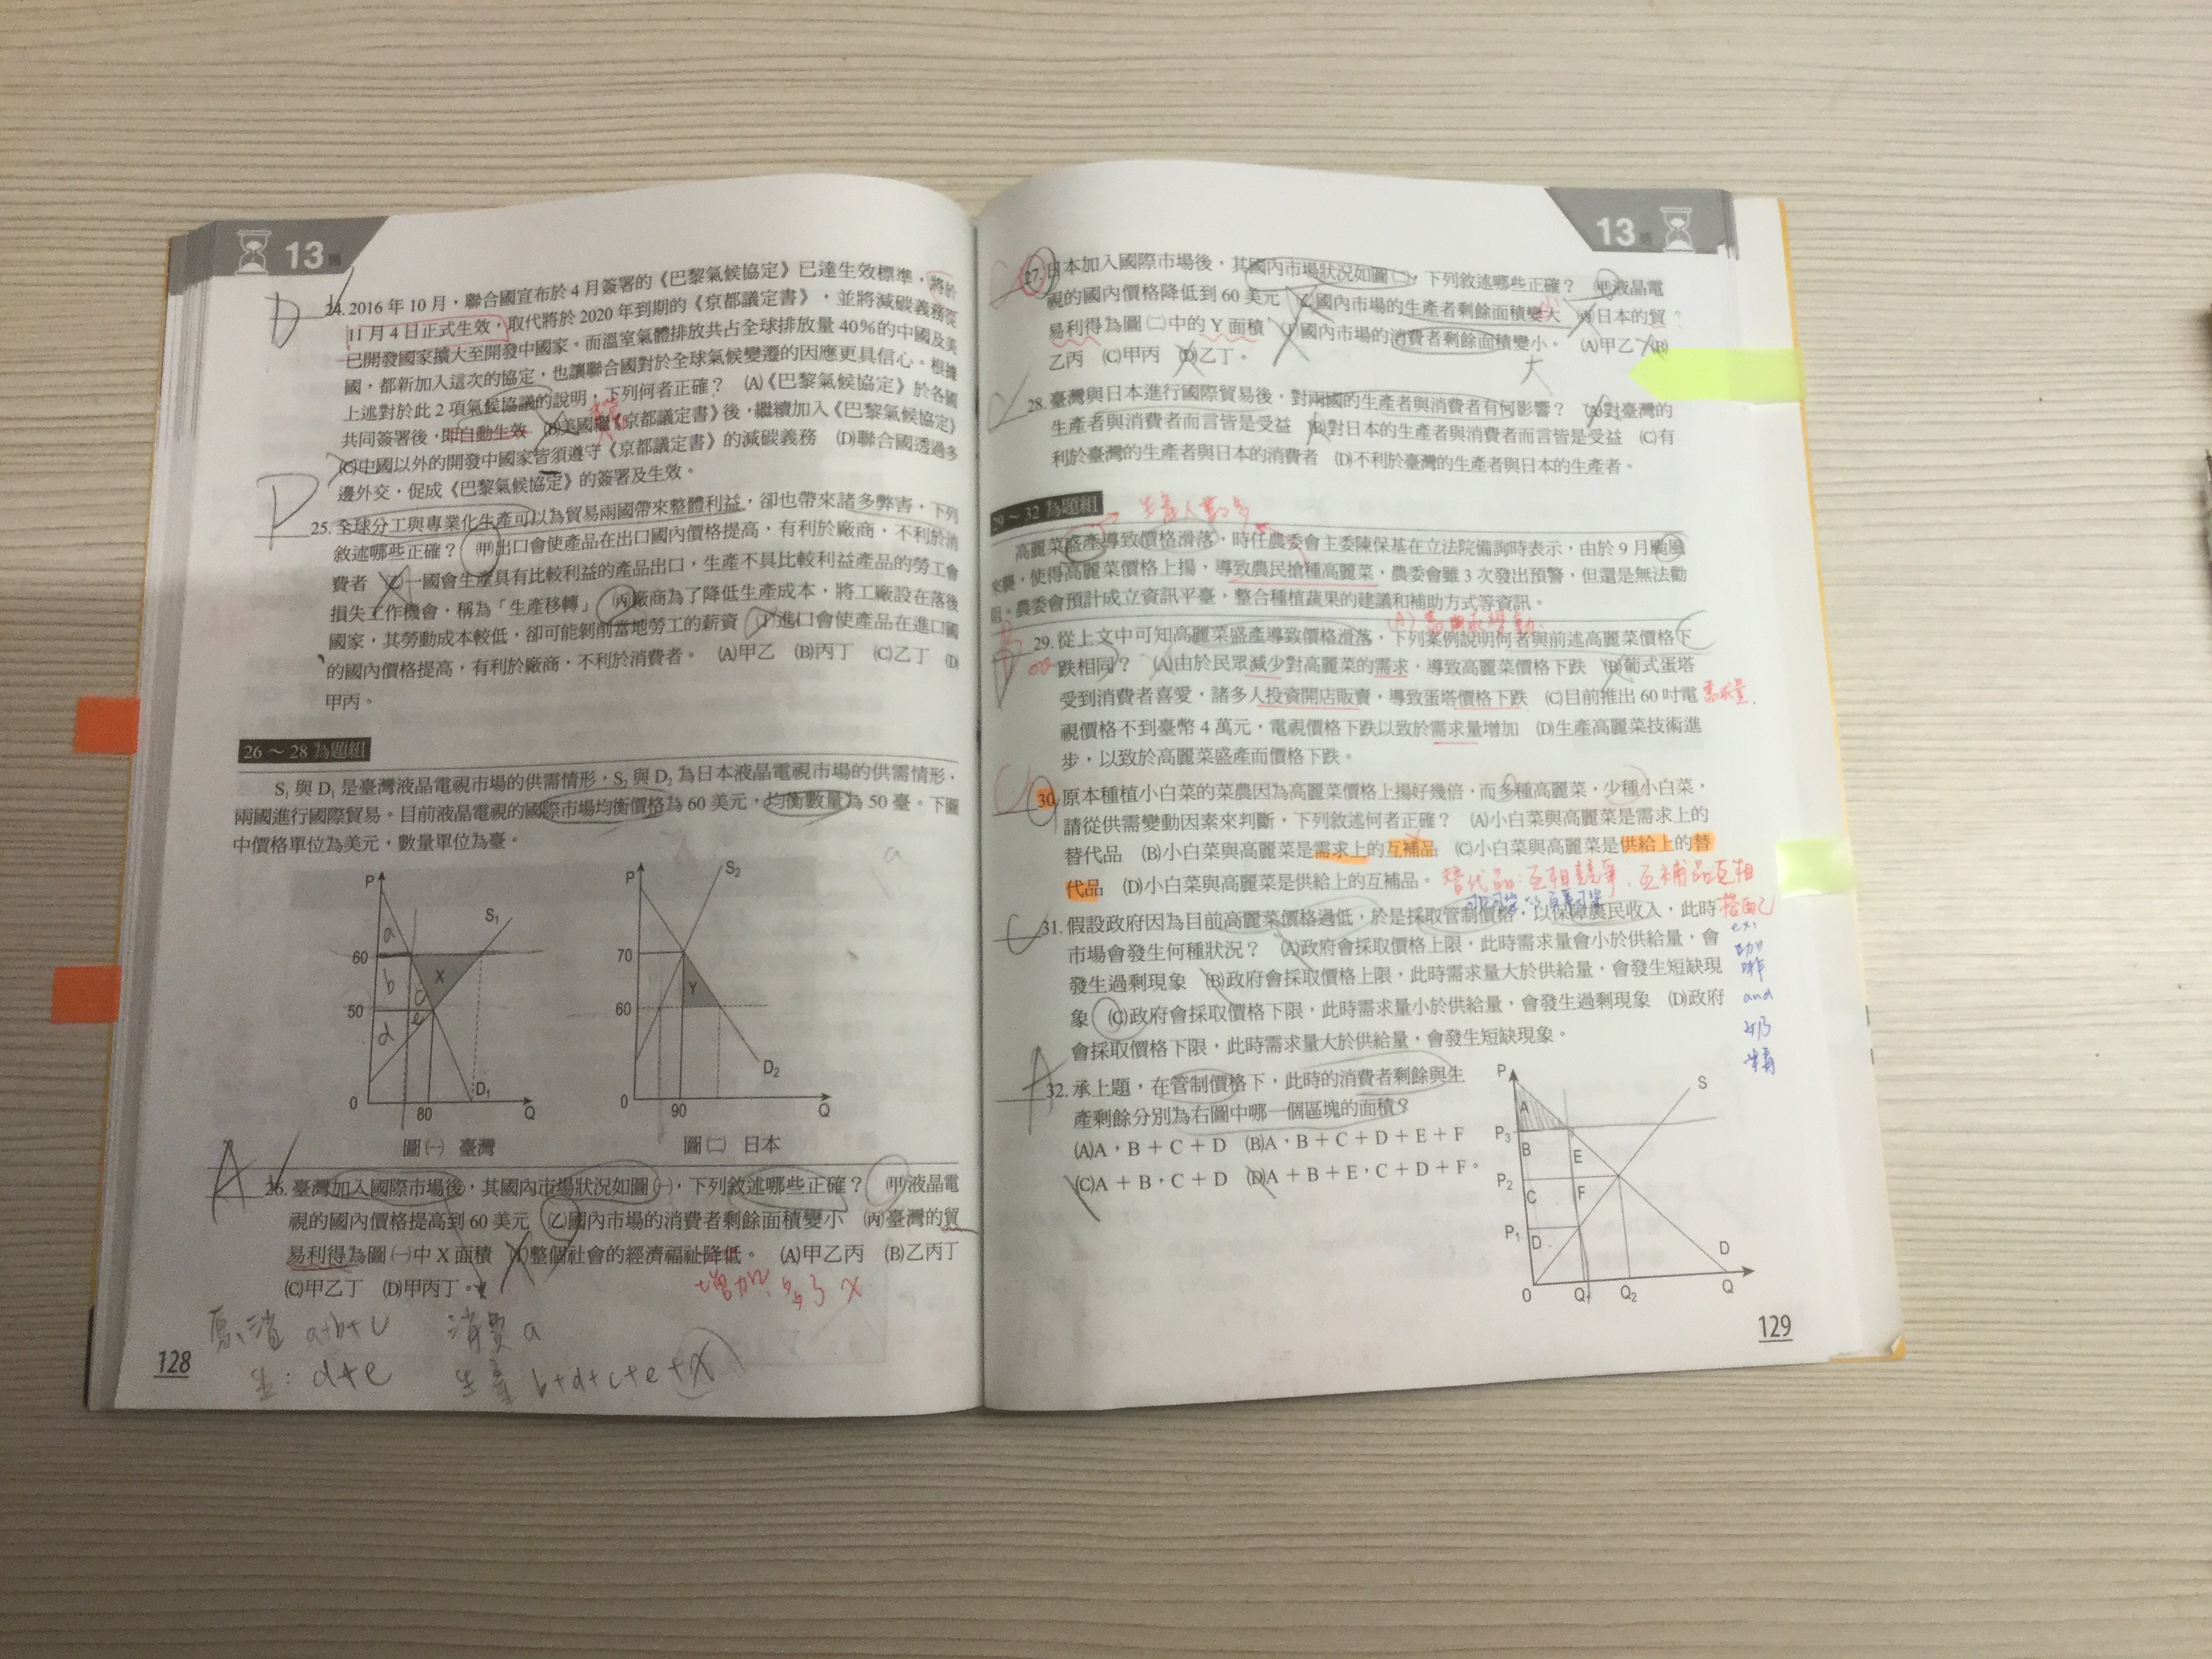 13
24. 2016 年 10 月，聯合國宣布於 4 月簽署的《巴黎氣候協定》已達生效標準，將於
11 月 4 日正式生效，取代將於 2020 年到期的《京都議定書》，並將減碳義務從
已開發國家擴大至開發中國家。而溫室氣體排放共占全球排放量 40%的中國及美
國，都新加入這次的協定，也讓聯合國對於全球氣候變遷的因應更具信心。根據
上述對於此 2 項氣候協議的說明，下列何者正確？ (A)《巴黎氣候協定》於各國
共同簽署後，即自動生效 (B)美國繼《京都議定書》後，繼續加入《巴黎氣候協定》
(C)中國以外的開發中國家皆須遵守《京都議定書》的減碳義務 (D)聯合國透過多
邊外交，促成《巴黎氣候協定》的簽署及生效。
D
25. 全球分工與專業化生產可以為貿易兩國帶來整體利益，卻也帶來諸多弊害，下列
敘述哪些正確？ (甲)出口會使產品在出口國內價格提高，有利於廠商，不利於消
費者 (乙)一國會生產具有比較利益的產品出口，生產不具比較利益產品的勞工會
損失工作機會，稱為「生產移轉」 (丙)廠商為了降低生產成本，將工廠設在落後
國家，其勞動成本較低，卻可能剝削當地勞工的薪資 (丁)進口會使產品在進口國
的國內價格提高，有利於廠商，不利於消費者。 (A)甲乙 (B)丙丁 (C)乙丁 (D)
甲丙。
D
26～28 為題組
S₁ 與 D₁ 是臺灣液晶電視市場的供需情形，S₂ 與 D₂ 為日本液晶電視市場的供需情形，
兩國進行國際貿易。目前液晶電視的國際市場均衡價格為 60 美元，均衡數量為 50 臺。下圖
中價格單位為美元，數量單位為臺。
P
S₁
60
50
a
b
c
d
e
X
D₁
0
80
Q
圖(一) 臺灣
P
S₂
70
60
Y
D₂
0
90
Q
圖(二) 日本
A
26. 臺灣加入國際市場後，其國內市場狀況如圖(一)，下列敘述哪些正確？ (甲)液晶電
視的國內價格提高到 60 美元 (乙)國內市場的消費者剩餘面積變小 (丙)臺灣的貿
易利得為圖(一)中 X 面積 (丁)整個社會的經濟福祉降低。 (A)甲乙丙 (B)乙丙丁
(C)甲乙丁 (D)甲丙丁。
增加，多了 X
原消 a+b+c 消費 a
生：d+e 生產 b+d+c+e+X
128
13
27. 日本加入國際市場後，其國內市場狀況如圖(二)，下列敘述哪些正確？ (甲)液晶電
視的國內價格降低到 60 美元 (乙)國內市場的生產者剩餘面積變大 (丙)日本的貿
易利得為圖(二)中的 Y 面積 (丁)國內市場的消費者剩餘面積變小。 (A)甲乙 (B)
乙丙 (C)甲丙 (D)乙丁。
小
大
28. 臺灣與日本進行國際貿易後，對兩國的生產者與消費者有何影響？ (A)對臺灣的
生產者與消費者而言皆是受益 (B)對日本的生產者與消費者而言皆是受益 (C)有
利於臺灣的生產者與日本的消費者 (D)不利於臺灣的生產者與日本的生產者。
29～32 為題組
生產人數多
高麗菜盛產導致價格滑落，時任農委會主委陳保基在立法院備詢時表示，由於 9 月颱風
來襲，使得高麗菜價格上揚，導致農民搶種高麗菜，農委會雖 3 次發出預警，但還是無法勸
阻。農委會預計成立資訊平臺，整合種植蔬果的建議和補助方式等資訊。
29. 從上文中可知高麗菜盛產導致價格滑落，下列案例說明何者與前述高麗菜價格下
跌相同？ (A)由於民眾減少對高麗菜的需求，導致高麗菜價格下跌 (B)葡式蛋塔
受到消費者喜愛，諸多人投資開店販賣，導致蛋塔價格下跌 (C)目前推出 60 吋電
視價格不到臺幣 4 萬元，電視價格下跌以致於需求量增加 (D)生產高麗菜技術進
步，以致於高麗菜盛產而價格下跌。
需求量
30. 原本種植小白菜的菜農因為高麗菜價格上揚好幾倍，而多種高麗菜，少種小白菜，
請從供需變動因素來判斷，下列敘述何者正確？ (A)小白菜與高麗菜是需求上的
替代品 (B)小白菜與高麗菜是需求上的互補品 (C)小白菜與高麗菜是供給上的替
代品 (D)小白菜與高麗菜是供給上的互補品。
替代品：互相競爭，互補品互相
搭配
ex:
咖啡
and
奶精
C
31. 假設政府因為目前高麗菜價格過低，於是採取管制價格，以保障農民收入，此時
市場會發生何種狀況？ (A)政府會採取價格上限，此時需求量會小於供給量，會
發生過剩現象 (B)政府會採取價格上限，此時需求量大於供給量，會發生短缺現
象 (C)政府會採取價格下限，此時需求量小於供給量，會發生過剩現象 (D)政府
會採取價格下限，此時需求量大於供給量，會發生短缺現象。
A
32. 承上題，在管制價格下，此時的消費者剩餘與生
產剩餘分別為右圖中哪一個區塊的面積？
(A)A，B＋C＋D (B)A，B＋C＋D＋E＋F
(C)A＋B，C＋D (D)A＋B＋E，C＋D＋F。
P
S
A
P₃
B
E
P₂
C
F
P₁
D
D
0
Q₁
Q₂
Q
129